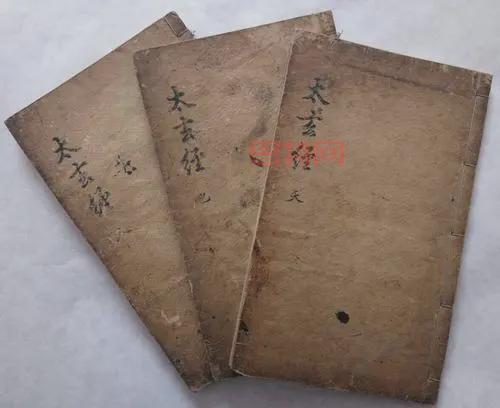 太玄經
天
太玄經
地
太玄經